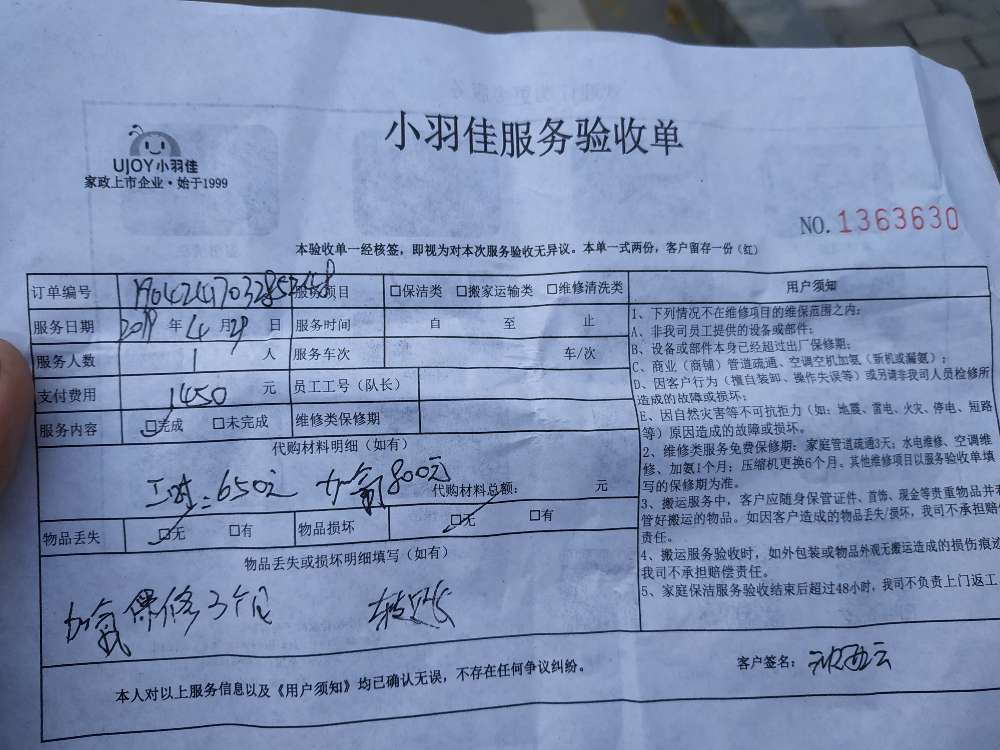 小羽佳服务验收单
UJOY小羽佳
家政上市企业·始于1999
NO.1363630
本验收单一经核签，即视为对本次服务验收无异议。本单一式两份，客户留存一份（红）
订单编号 服务项目 □保洁类 □搬家运输类 □维修清洗类
服务日期 2019年4月29日 服务时间 自 至 止
服务人数 1人 服务车次 车/次
支付费用 1450元 员工工号（队长）
服务内容 □完成 □未完成 维修类保修期
代购材料明细（如有）
工时：650元 加氟800元
代购材料总额： 元
物品丢失 □无 □有 物品损坏 □无 □有
物品丢失或损坏明细填写（如有）
加氟保修3个月
本人对以上服务信息以及《用户须知》均已确认无误，不存在任何争议纠纷。
客户签名：
用户须知
1、下列情况不在维修项目的维保范围之内：
A、非我司员工提供的设备或部件；
B、设备或部件本身已经超过出厂保修期；
C、商业（商铺）管道疏通、空调空机加氨（新机或漏氨）；
D、因客户行为（擅自装卸、操作失误等）或另请非我司人员检修所
造成的故障或损坏；
E、因自然灾害等不可抗拒力（如：地震、雷电、火灾、停电、短路
等）原因造成的故障或损坏。
2、维修类服务免费保修期：家庭管道疏通3天；水电维修、空调维
修、加氨1个月；压缩机更换6个月。其他维修项目以服务验收单填
写的保修期为准。
3、搬运服务中，客户应随身保管证件、首饰、现金等贵重物品并
管好搬运的物品。如因客户造成的物品丢失/损坏，我司不承担赔
责任。
4、搬运服务验收时，如外包装或物品外观无搬运造成的损伤痕迹
我司不承担赔偿责任。
5、家庭保洁服务验收结束后超过48小时，我司不负责上门返工